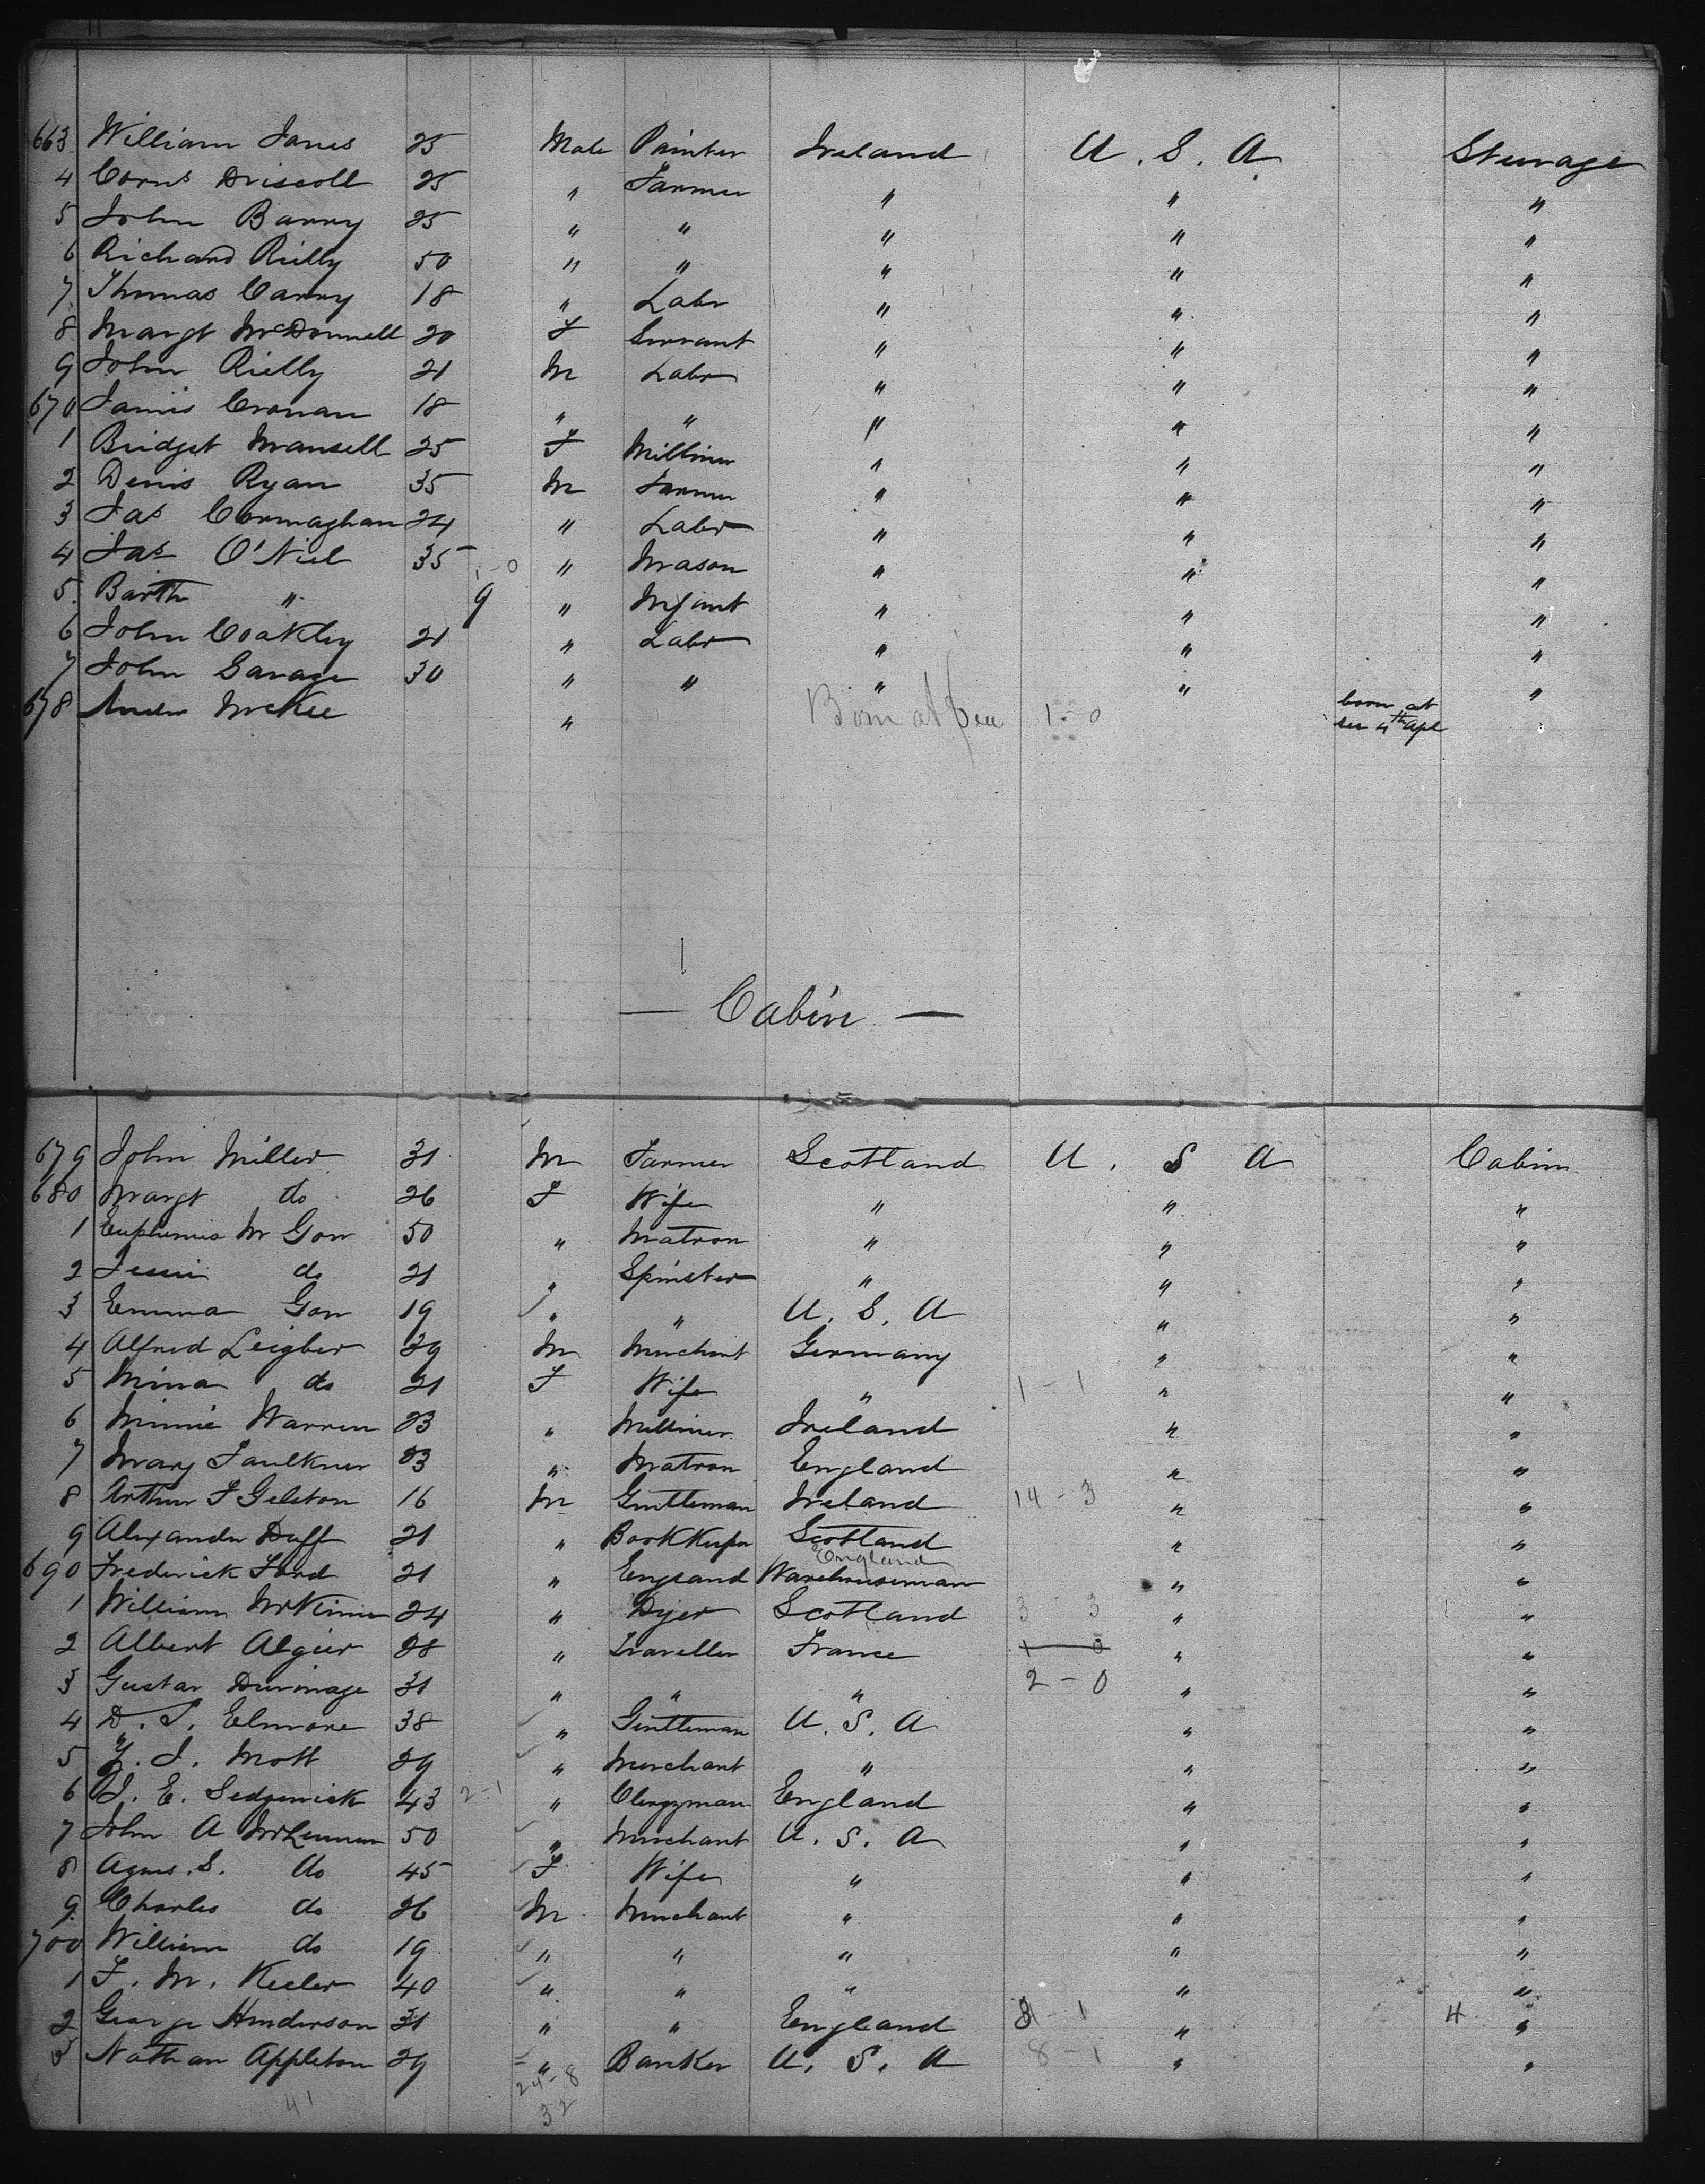 663 William Janes 25 Male Painter Ireland U. S. A Steerage
4 Corns Driscoll 25 " Farmer " " "
5 John Barry 25 " " " " "
6 Richard Rielly 50 " " " " "
7 Thomas Carry 18 " Labr " " "
8 Margt McDonnell 20 F Servant " " "
9 John Rielly 21 M Labr " " "
670 James Cronan 18 " " " " "
1 Bridget Mansell 25 F Milliner " " "
2 Denis Ryan 35 M Farmer " " "
3 Jas Cormaghan 24 " Labr " " "
4 Jas O'Niel 35 1-0 " Mason " " "
5 Barth " 9 " Infant " " "
6 John Coakley 21 " Labr " " "
7 John Savage 30 " " " " "
678 Andw McKee " Born at Sea 1-0 born at sea 4th Apl
— Cabin —
679 John Miller 31 M Farmer Scotland U. S A Cabin
680 Margt do 26 F Wife " " "
1 Euphemia M Gon 50 " Matron " " "
2 Jessie do 21 " Spinster " " "
3 Emma Gon 19 " " U. S. A " "
4 Alfred Leigber 39 M Merchant Germany " "
5 Mina do 21 F Wife " 1-1 " "
6 Minnie Warren 23 " Milliner Ireland " "
7 Mary Faulkner 23 " Matron England " "
8 Arthur F Gelston 16 M Gentleman Ireland 14-3 " "
9 Alexander Duff 21 " Bookkeeper Scotland " "
England
690 Frederick Ford 21 " England Warehouseman " "
1 William McKinnie 24 " Dyer Scotland 3-3 " "
2 Albert Algier 28 " Traveller France 1-0 " "
3 Gustav Durinage 31 " " " 2-0 " "
4 D. T. Elmore 38 " Gentleman U. S. A " "
5 J. J. Mott 29 " Merchant " " "
6 J. E. Sedgewick 43 2-1 " Clergyman England " "
7 John A McLennan 50 " Merchant U. S. A " "
8 Agnes. S. do 45 F Wife " " "
9 Charles do 26 M Merchant " " "
700 William do 19 " " " " "
1 F. M. Keeler 40 " " " " "
2 George Henderson 31 " " England 8-1 " 4 "
3 Nathan Appleton 29 " Banker U. S. A 8-1 " "
24-8
41 32